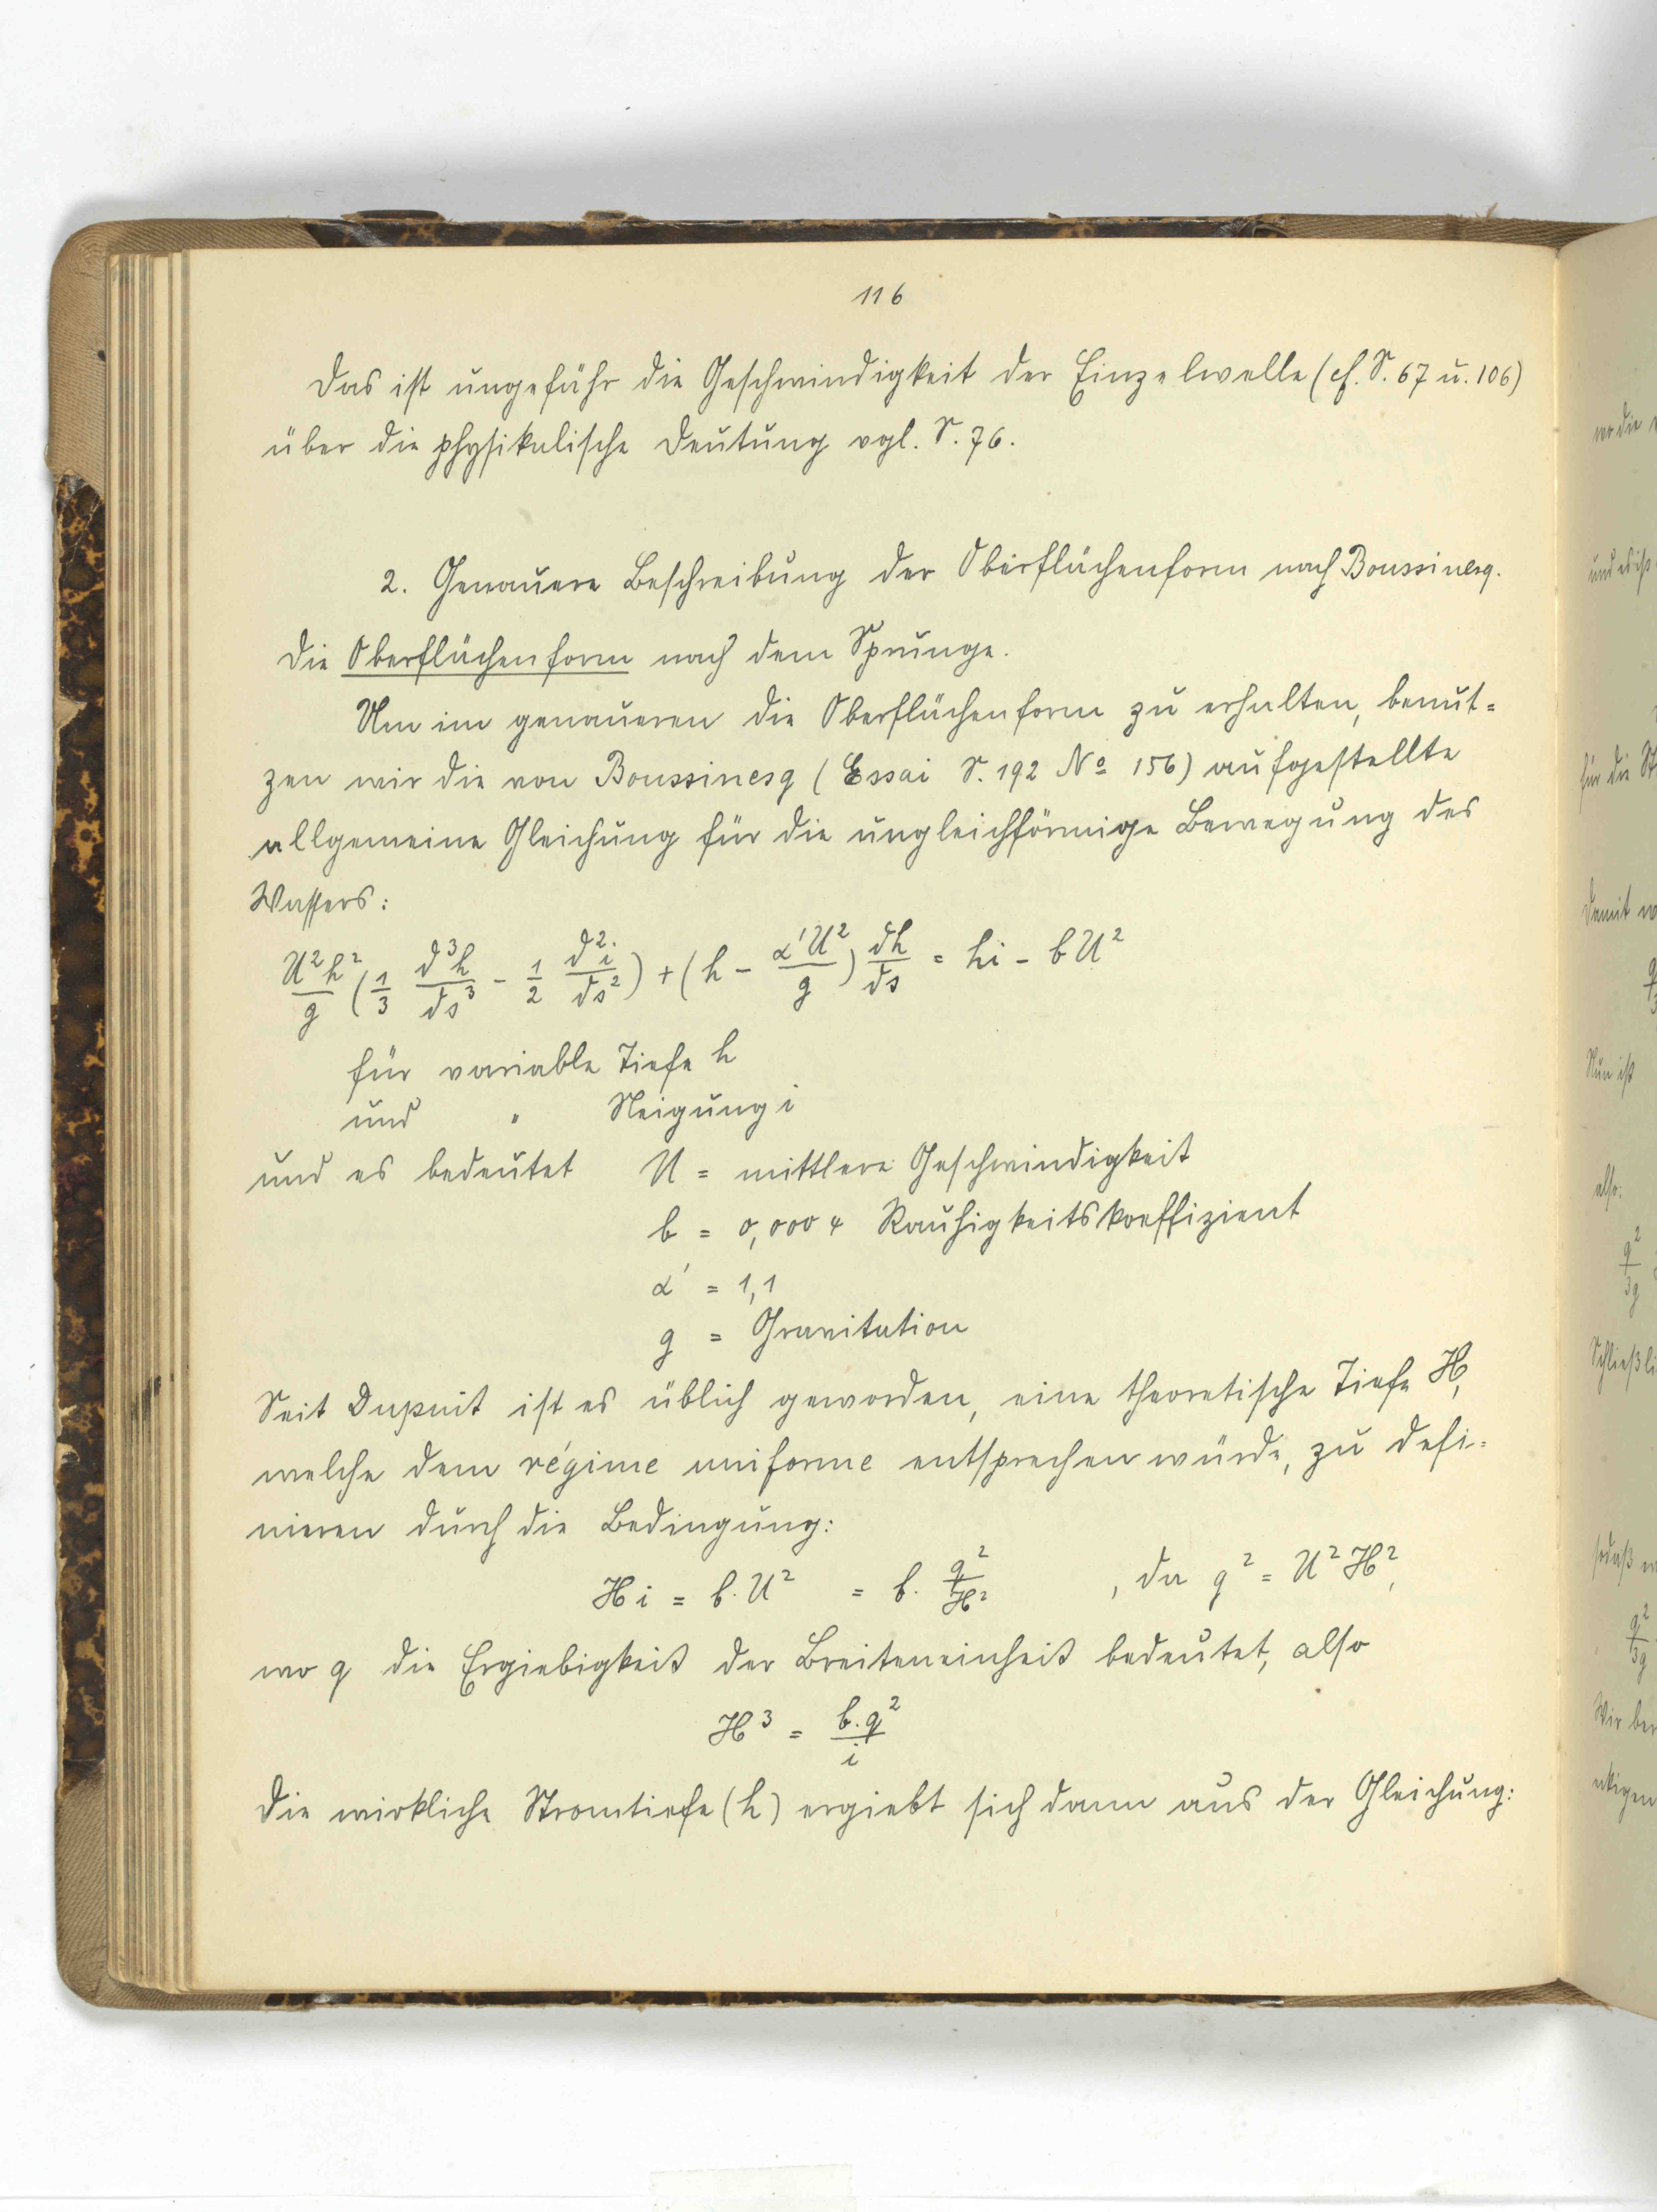 116
Das ist ungefähr die Geschwindigkeit der Einzelwelle (cf. S. 67 u. 106)
über die physikalische Deutung vgl. S. 76.
2. Genauere Beschreibung der Oberflächenform nach Boussinesq.
Die Oberflächenform nach dem Sprunge.
Um im genaueren die Oberflächenform zu erhalten, benut=
zen wir die von Boussinesq (Essai S. 192 Nº 156) aufgestellte
allgemeine Gleichung für die ungleichförmige Bewegung des
Wassers:
U²h²/g (1/3 d³h/ds³ - 1/2 d²i/ds²) + (h - α'U²/g) dh/ds = hi - bU²
für variable Tiefe h
und " Neigung i
und es bedeutet U = mittlere Geschwindigkeit
b = 0,0004 Rauhigkeitskoeffizient
α' = 1,1
g = Gravitation
Seit Dupuit ist es üblich geworden, eine theoretische Tiefe H,
welche dem régime uniforme entsprechen würde, zu defi-
nieren durch die Bedingung:
Hi = b. U² = b. q²/H² , da q² = U²H²,
wo q die Ergiebigkeit der Breiteneinheit bedeutet, also
H³ = b.q²/i
Die wirkliche Stromtiefe (h) ergiebt sich dann aus der Gleichung:
wo die
für die
damit
Nun ist
also:
q²/3g
sodaß
q²/3g